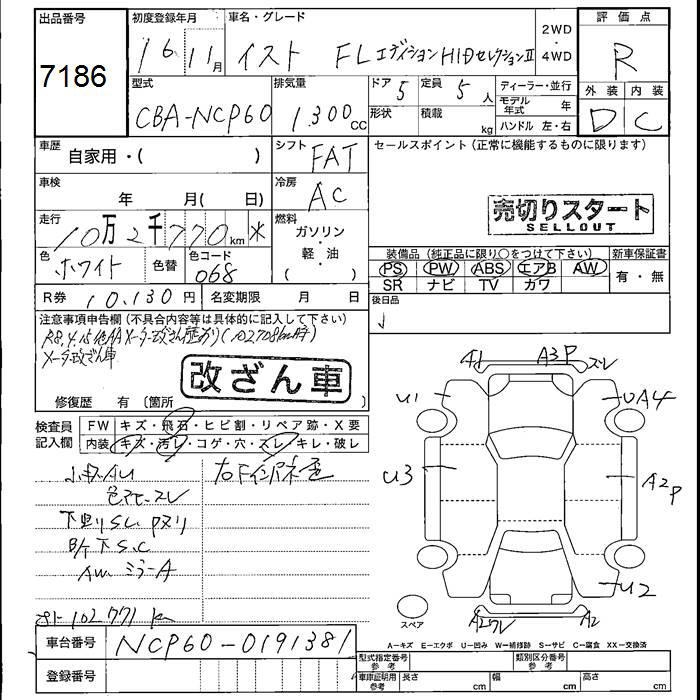 出品番号 初度登録年月 車名・グレード 2WD・4WD 評価点
7186 16 11月 イスト FL エディションHIDセレクションⅡ R
型式 排気量 ドア 5 定員 5人 ディーラー・並行 外装 内装
CBA-NCP60 1.300cc 形状 積載 kg モデル年式 年 D C
ハンドル 左・右
車歴 自家用・( ) シフト FAT セールスポイント(正常に機能するものに限ります)
車検 年 月( 日) 冷房 AC
売切りスタート
SELLOUT
走行 10万2千770km 燃料 ガソリン・軽・油( )
色 ホワイト 色替 色コード 068
装備品(純正品に限り○をつけて下さい) 新車保証書
PS PW ABS エアB AW 有・無
SR ナビ TV カワ
R券 10,130円 名変期限 月 日 後日品
注意事項申告欄(不具合内容等は具体的に記入して下さい)
メーター改ざん車
改ざん車
修復歴 有 〔箇所
検査員記入欄 FW キズ・飛石・ヒビ割・リペア跡・X要
内装 キズ・汚レ・コゲ・穴・スレ・キレ・破レ
下廻りSU Pヌリ
下S.C
AW ミラーA
102771k
A1 A3P スレ
U1 UA4
U3 A2P
U2
A2 A2
スペア
A-キズ E-エクボ U-凹み W-補修跡 S-サビ C-腐食 XX-交換済
車台番号 NCP60-0191381
型式指定番号参考 類別区分番号参考
登録番号
車車証明用参考 長さ cm 幅 cm 高さ cm